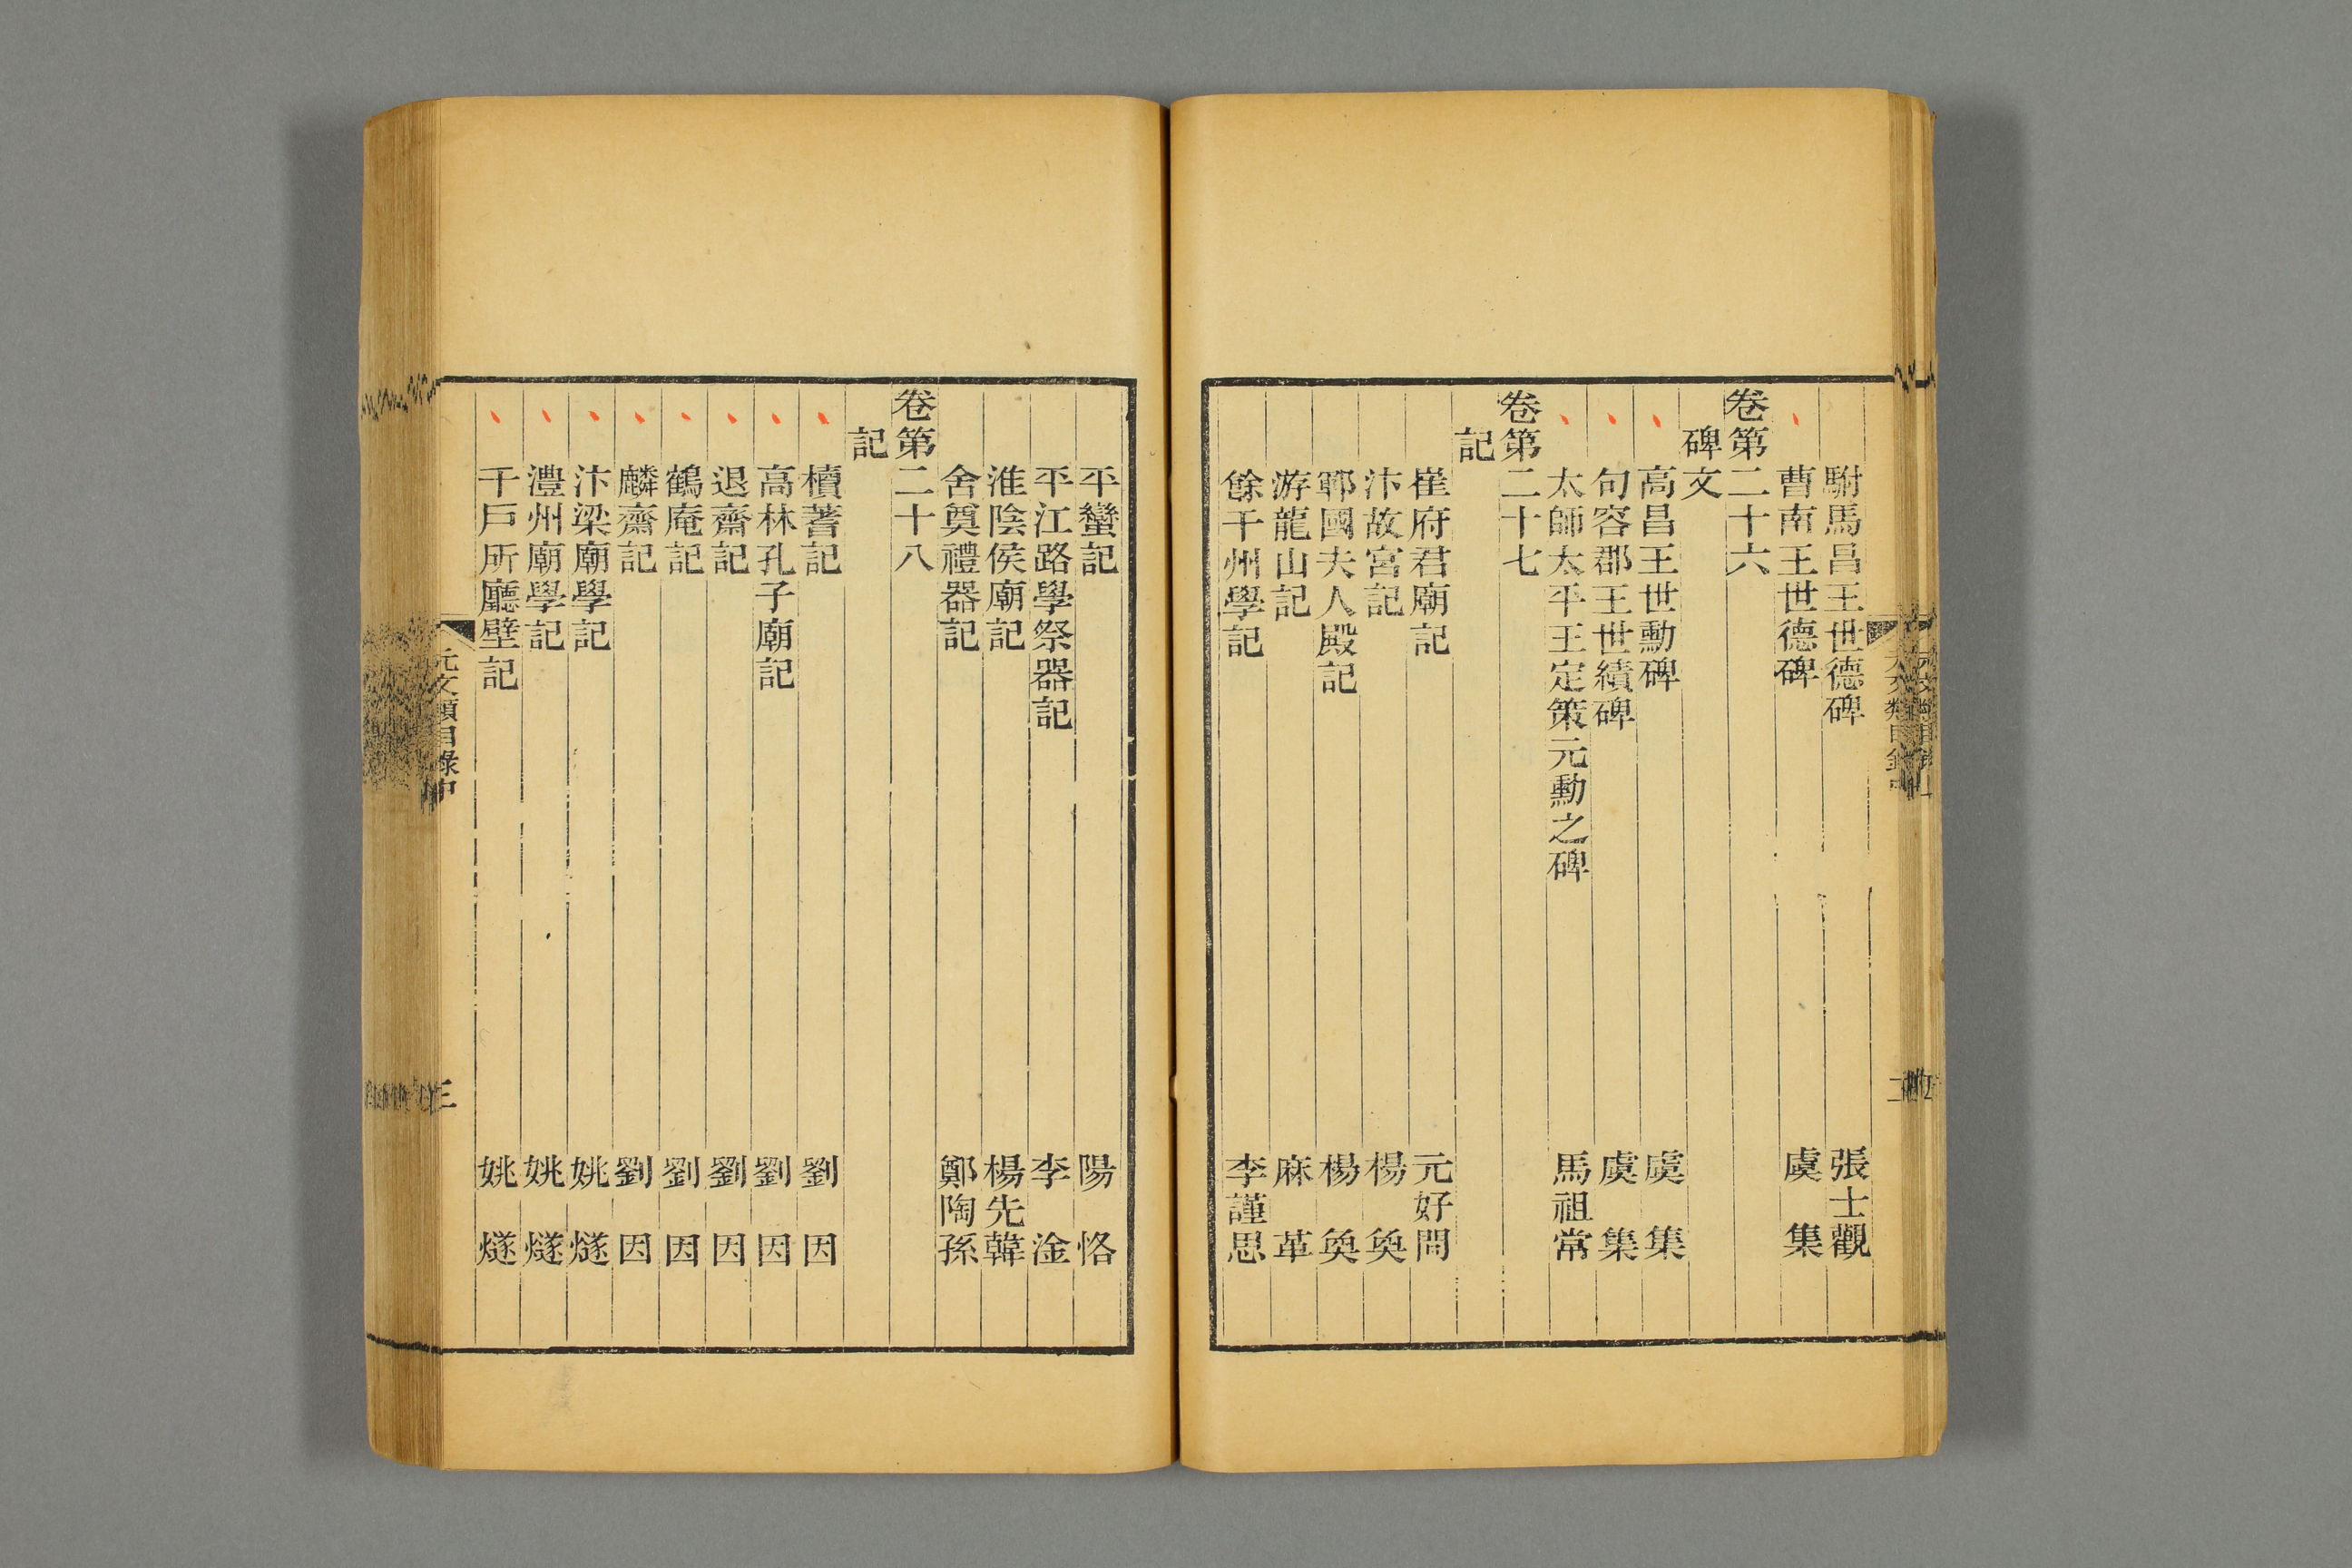 駙馬昌王世德碑 張士觀
曹南王世德碑 虞集
卷第二十六
碑文
高昌王世勳碑 虞集
句容郡王世績碑 虞集
太師太平王定策元勳之碑 馬祖常
卷第二十七
記
崔府君廟記 元好問
汴故宮記 楊奐
鄆國夫人殿記 楊奐
游龍山記 麻革
餘干州學記 李謹思
平蠻記 陽恪
平江路學祭器記 李淦
淮陰侯廟記 楊先韓
舍奠禮器記 鄭陶孫
卷第二十八
記
櫝蓍記 劉因
高林孔子廟記 劉因
退齋記 劉因
鶴庵記 劉因
麟齋記 劉因
汴梁廟學記 姚燧
澧州廟學記 姚燧
千戶所廳壁記 姚燧
元文類目錄中
三